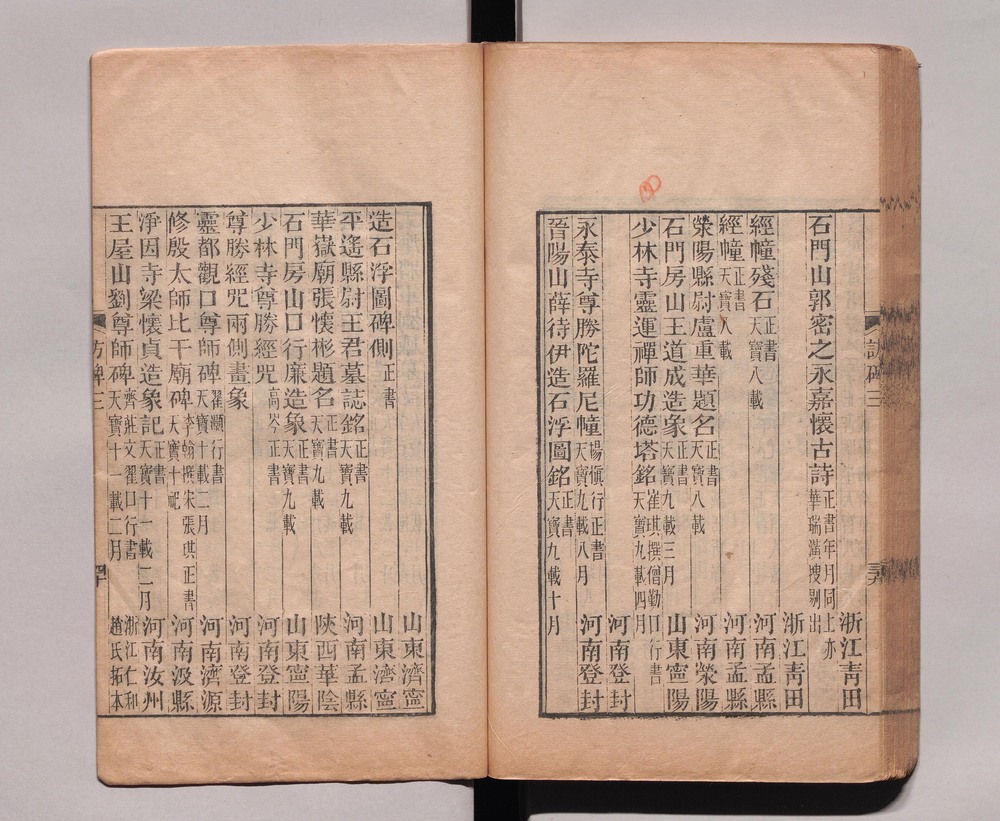 訪碑三
浙江青田
石門山郭密之永嘉懷古詩正書年月同上亦華瑞潢搜剔出
浙江青田
經幢殘石正書天寶八載
河南孟縣
經幢正書天寶八載
河南孟縣
滎陽縣尉盧重華題名正書天寶八載
河南滎陽
石門房山王道成造象正書天寶九載三月
山東寧陽
少林寺靈運禪師功德塔銘崔琪撰僧勤口行書天寶九載四月
河南登封
永泰寺尊勝陀羅尼幢楊愼行正書天寶九載八月
河南登封
晉陽山薛待伊造石浮圖銘正書天寶九載十月
山東濟寧
造石浮圖碑側正書
山東濟寧
平遙縣尉王君墓誌銘正書天寶九載
河南孟縣
華嶽廟張懷彬題名正書天寶九載
陝西華陰
石門房山口行廉造象正書天寶九載
山東寧陽
少林寺尊勝經咒高岑正書
河南登封
尊勝經咒兩側畫象
河南登封
靈都觀口尊師碑翟灝行書天寶十載二月
河南濟源
修殷太師比干廟碑李翰撰宋張琪正書天寶十祀
河南汲縣
淨因寺梁懷貞造象記正書天寶十一載二月
河南汝州
王屋山劉尊師碑齊莊文翟口行書天寶十一載二月
浙江仁和趙氏拓本
訪碑三